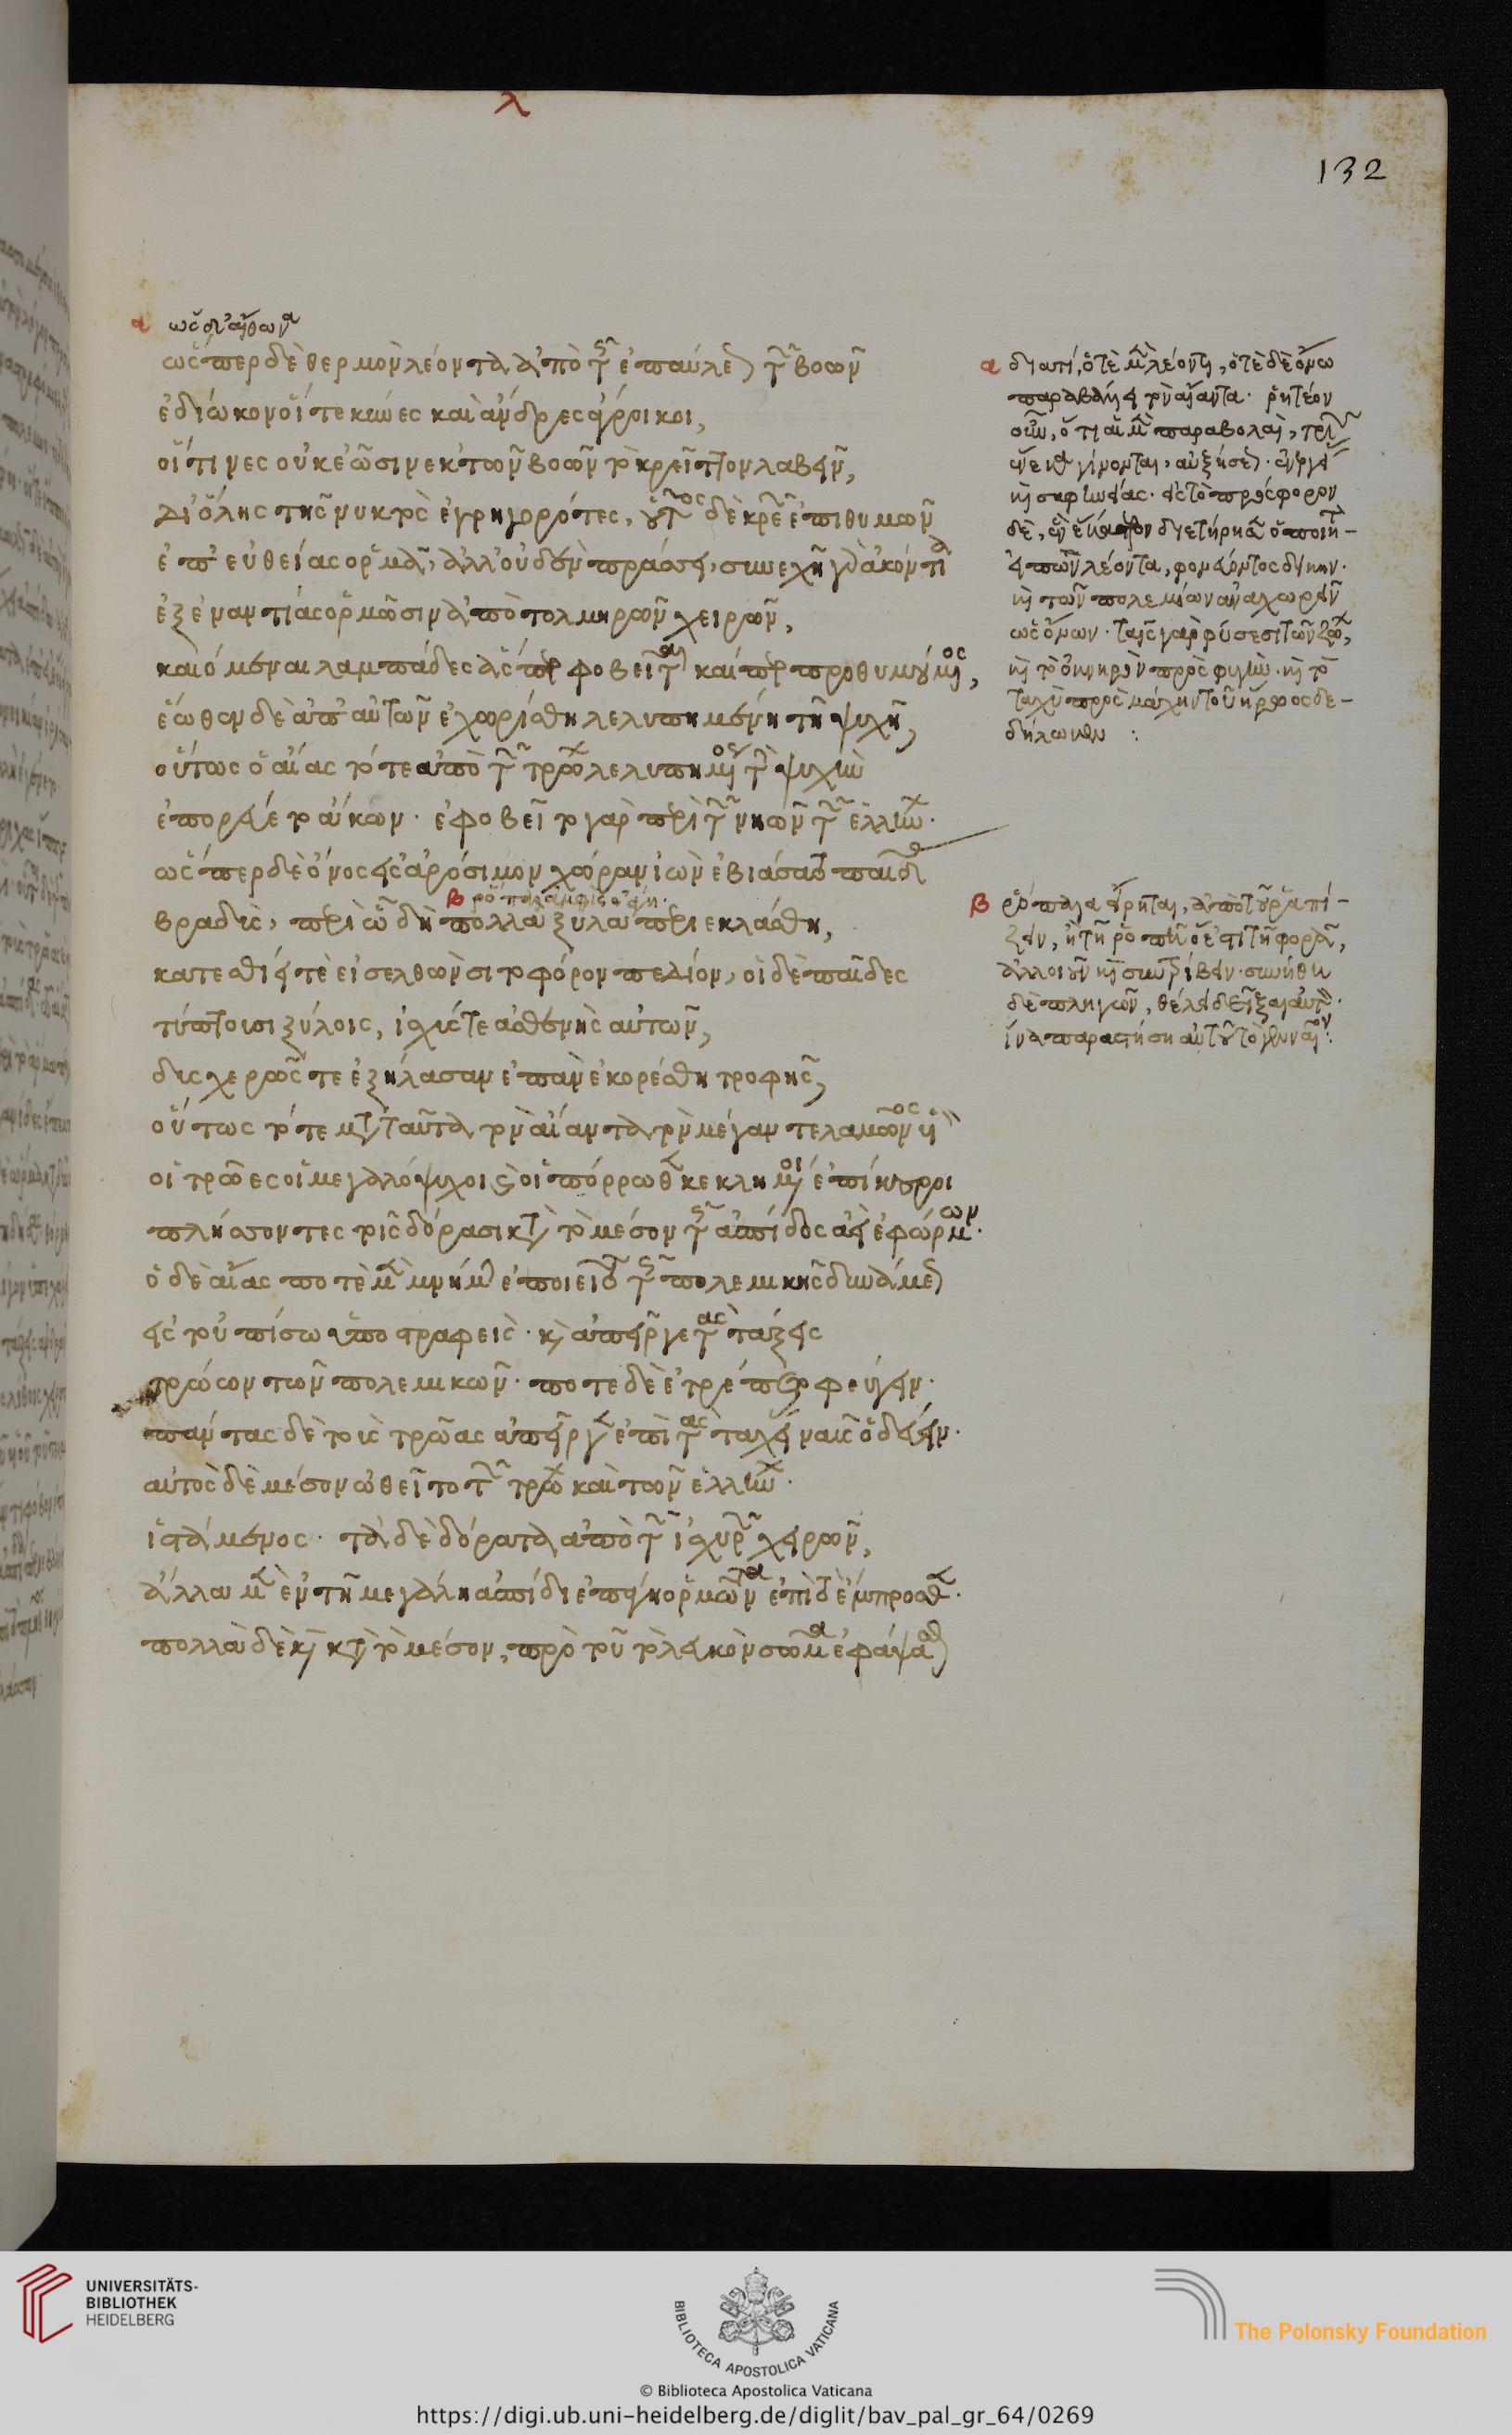 λ
132
α ὡς δ' αἴθωνα
ὥσπερ δὲ θερμὸν λέοντα ἀπὸ τῆς ἐπαύλεως τῶν βοῶν
ἐδίωκον οἵ τε κύνες καὶ ἄνδρες ἀγροῖκοι,
οἵτινες οὐκ ἐῶσιν ἐκ τῶν βοῶν τὸ κρεῖττον λαβεῖν,
δι' ὅλης τῆς νυκτὸς ἐγρηγορότες, οὗτος δὲ κρεῶν ἐπιθυμῶν
ἐπ' εὐθείας ὁρμᾶ, ἀλλ' οὐδὲν πράσσει, συνεχῆ γὰρ ἀκόντια
ἐξ ἐναντίας ὁρμῶσιν ἀπὸ τολμηρῶν χειρῶν,
καιόμεναι λαμπάδες ἅσπερ φοβεῖται καίπερ προθυμούμενος,
ἕωθεν δὲ ἀπ' αὐτῶν ἐχωρίσθη λελυπημένη τῆ ψυχῆ,
οὕτως ὁ αἴας τότε ἀπὸ τῶν τρώων λελυπημένος τὴν ψυχὴν
ἐπορεύετο ἄκων· ἐφοβεῖτο γὰρ περὶ τῶν νηῶν τῶν ἑλλήνων·
ὥσπερ δὲ ὄνος εἰς ἀρόσιμον χώραν ἰὼν ἐβιάσατο παῖδας
β
βραδὺς, περὶ ὧ δὴ πολλὰ ξύλα περιεκλάσθη,
κατεσθίει τὲ εἰσελθὼν σιτοφόρον πεδίον, οἱ δὲ παῖδες
τύπτουσι ξύλοις, ἰσχὺς τε ἀσθενὴς αὐτῶν,
δυσχερῶς τε ἐξήλασαν ἐπὰν ἐκορέσθη τροφῆς,
οὕτως τότε μετὰ ταῦτα τὸν αἴαντα τὸν μέγαν τελαμῶνος υἱὸν
οἱ τρῶες οἱ μεγαλόψυχοι καὶ οἱ πόρρωθεν κεκλημένοι ἐπίκουροι
πλήσσοντες τοῖς δόρασι κατὰ τὸ μέσον τῆς ἀσπίδος ἀεὶ ἐφώρμων·
ὁ δὲ αἴας ποτὲ μὲν μνήμην ἐποιεῖτο τῆς πολεμικῆς δυνάμεως
εἰς τοὐπίσω ὑποστραφείς· καὶ ἀπεῖργε τὰς τάξεις
τρώων τῶν πολεμικῶν· ποτὲ δὲ ἐτρέπετο φεύγειν·
πάντας δὲ τοὺς τρῶας ἀπεῖργεν ἐπὶ τὰς ταχείας ναῦς ὁδεύειν·
αὐτὸς δὲ μέσον ὠθεῖτο τῶν τρώων καὶ τῶν ἑλλήνων·
ἱστάμενος· τὰ δὲ δόρατα ἀπὸ τῶν ἰσχυρῶν χειρῶν,
ἄλλα μὲν ἐν τῆ μεγάλη ἀσπίδι ἐπήγη ὁρμῶντα ἐπὶ τὸ ἔμπροσθεν·
πολλὰ δὲ καὶ κατὰ τὸ μέσον, πρὸ τοῦ τὸ λευκὸν σῶμα ἐφάψασθαι
α διατί, ὁτὲ μὲν λέοντι, ὁτὲ δὲ ὄνω
παραβάλλει τὸν αἴαντα· ῥητέον
οὖν, ὅτι αἱ μὲν παραβολαὶ, τριῶν
ἕνεκα γίνονται, αὐξήσεως· ἐνεργείας
καὶ σαφηνείας· εἰς τὸ πρόσφορον
δὲ, ἓν ἕκαστον διετήρησεν ὁ ποιητὴς·
λέοντα,
καὶ τῶν πολεμίων ἀναχωρεῖν
ὡς ὄνον· ταῖς γὰρ φύσεσι τῶν ζώων,
καὶ τὸ ὀκνηρὸν πρὸς φυγὴν· καὶ τὸ
ταχὺ πρὸς μάχην τοῦ ἥρωος δε-
δήλωκεν :
β ῥόπαλα εἴρηται, ἀπὸ τοῦ ῥαπί-
ζειν, ἢ τῆ ῥοπῆ ὅ ἐστι τῆ φορᾶ,
ἀλλοιοῦν καὶ συντρίβειν· συνήθη
δὲ πληγῶν, θέλει δεῖξαι αὐτὸν·
ἵνα παραστήση αὐτοῦ τὸ γενναῖον:
UNIVERSITÄTS-
BIBLIOTHEK
HEIDELBERG
BIBLIOTECA APOSTOLICA VATICANA
The Polonsky Foundation
© Biblioteca Apostolica Vaticana
https://digi.ub.uni-heidelberg.de/diglit/bav_pal_gr_64/0269